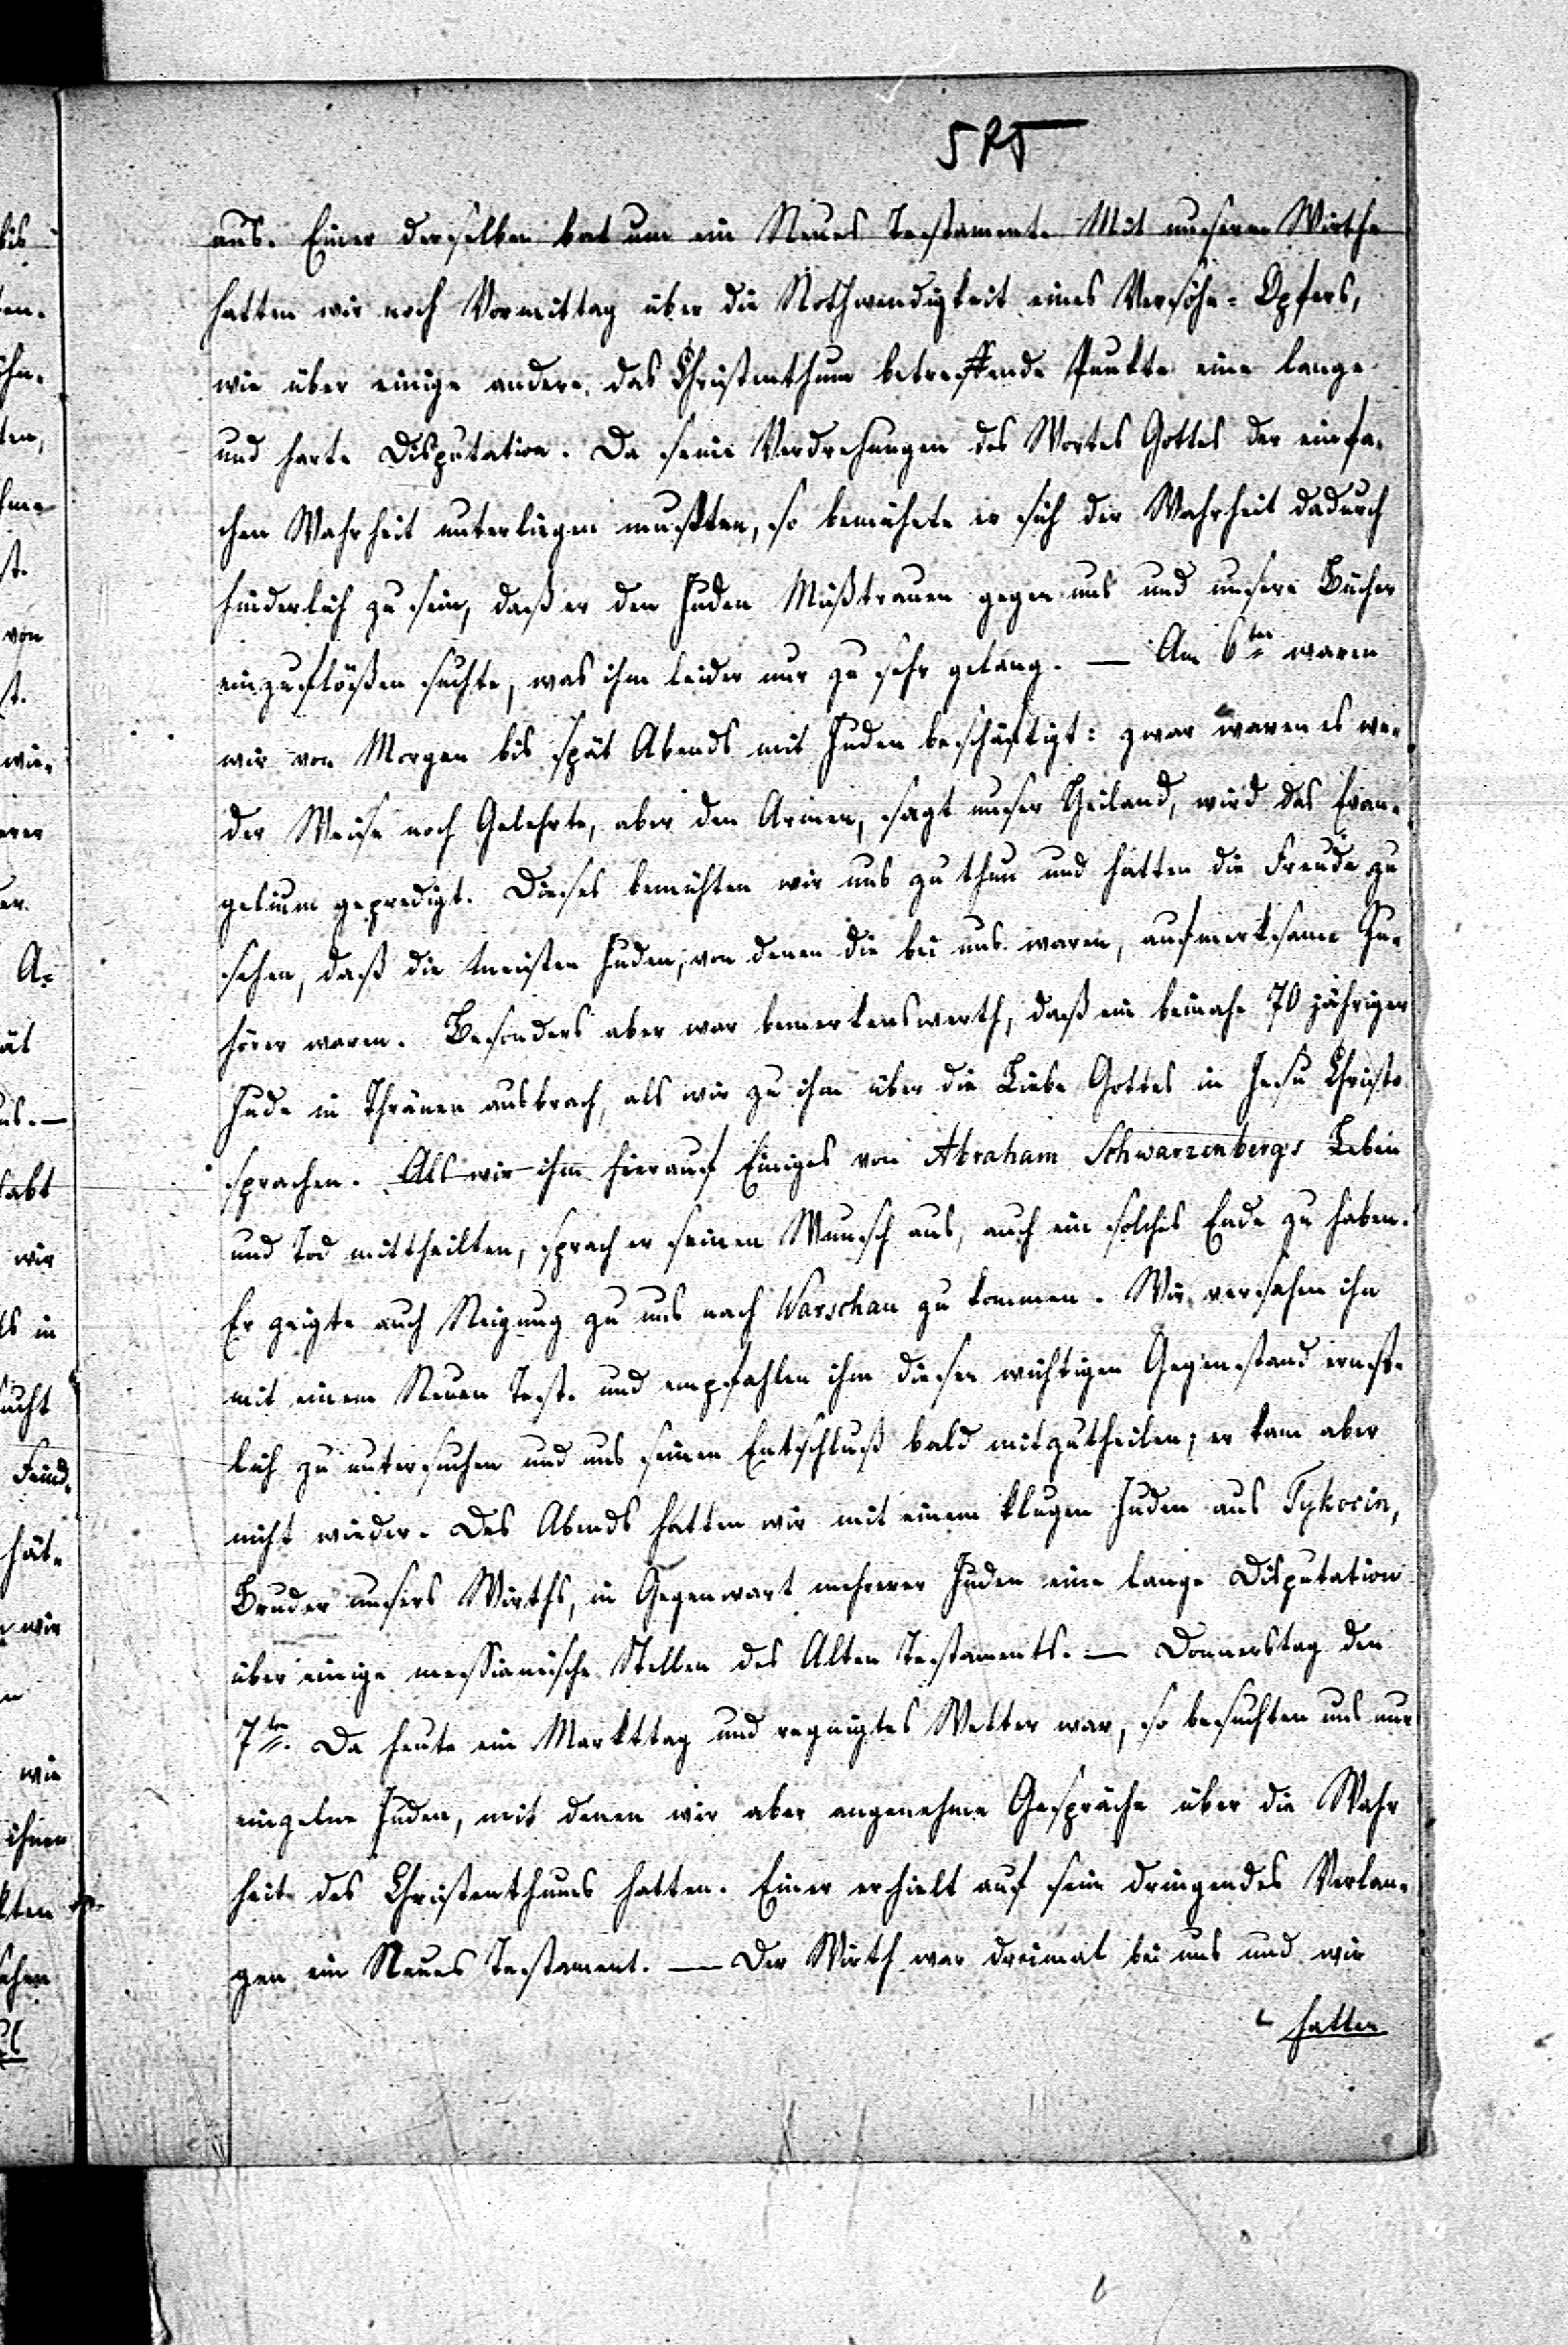 aus. Einer derselben bat um ein Neues Testament. Mit unserm Wirthe
hatten wir noch Vormittag über die Nothwendigkeit eines Versöhn-Opfers,
wie über einige andere das Christenthum betreffende Punkte eine lange
und harte Disputation. Da seine Verdrehungen des Wortes Gottes der einfa-
chen Wahrheit unterliegen mußten, so bemühete er sich der Wahrheit dadurch
hinderlich zu sein, daß er den Juden Mißtrauen gegen uns und unsere Bücher
einzuflößen suchte, was ihm leider nur zu sehr gelang. — Am 6ten waren
wir von Morgen bis spät Abends mit Juden beschäftigt: zwar waren es we-
der Weise noch Gelehrte, aber den Armen, sagt unser Heiland, wird das Evan-
gelium gepredigt. Dieses bemühten wir uns zu thun und hatten die Freude zu
sehen, daß die meisten Juden, von denen die bei uns waren, aufmerksame Zu-
hörer waren. Besonders aber war bemerkenswerth, daß ein beinahe 70 jähriger
Jude in Thränen ausbrach, als wir zu ihm über die Liebe Gottes in Jesu Christo
sprachen. Als wir ihm hierauf Einiges von Abraham Schwarzenbergs Leben
und Tod mittheilten, sprach er seinen Wunsch aus, auch ein solches Ende zu haben.
Er zeigte auch Neigung zu uns nach Warschau zu kommen. Wir versahen ihn
mit einem Neuen Test. und empfahlen ihm diesen wichtigen Gegenstand ernst-
lich zu untersuchen und uns seinen Entschluß bald mitzutheilen; er kam aber
nicht wieder. Des Abends hatten wir mit einem klugen Juden aus Tykocin,
Bruder unsers Wirths, in Gegenwart mehrerer Juden eine lange Disputation
über einige messianische Stellen des Alten Testaments. — Donnerstag den
7ten. Da heute ein Markttag und regnigtes Wetter war, so besuchten uns nur
einzelne Juden, mit denen wir aber angenehme Gespräche über die Wahr
heit des Christenthums hatten. Einer erhielt auf sein dringendes Verlan-
gen ein Neues Testament. — Der Wirth war dreimal bei uns und wir
hatten